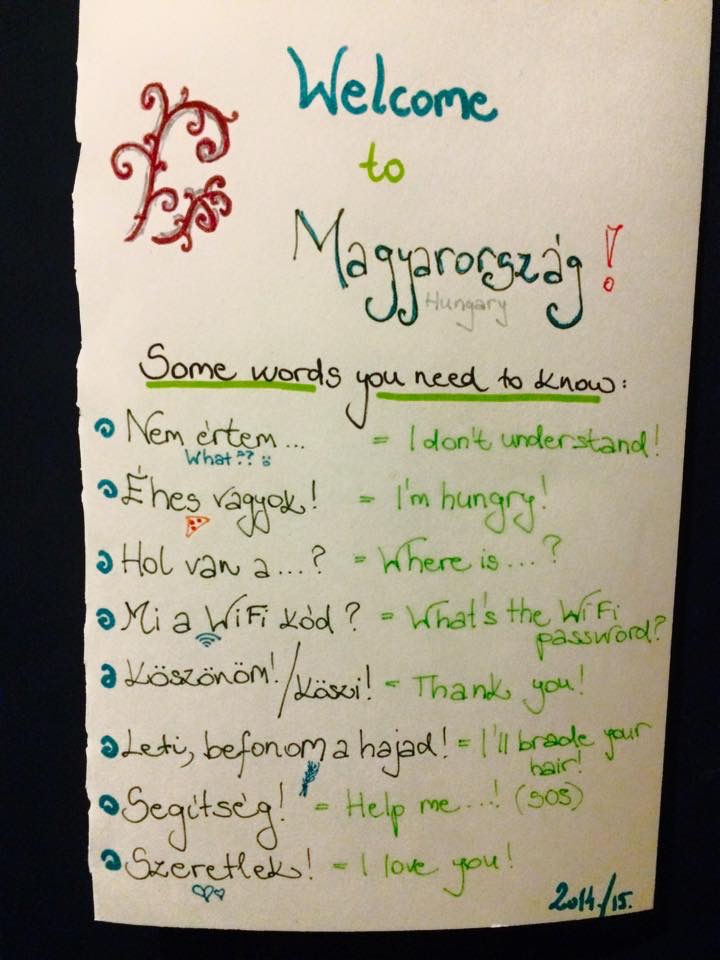 Welcome
to
Magyarország!
Hungary
Some words you need to know:
Nem értem... = I don't understand!
What??
Éhes vagyok! = I'm hungry!
Hol van a...? = Where is...?
Mi a WiFi kód? = What's the WiFi
password?
Köszönöm!/Köszi! = Thank you!
Leti, befonom a hajad! = I'll brade your
hair!
Segítség! = Help me...! (SOS)
Szeretlek! = I love you!
2014/15.